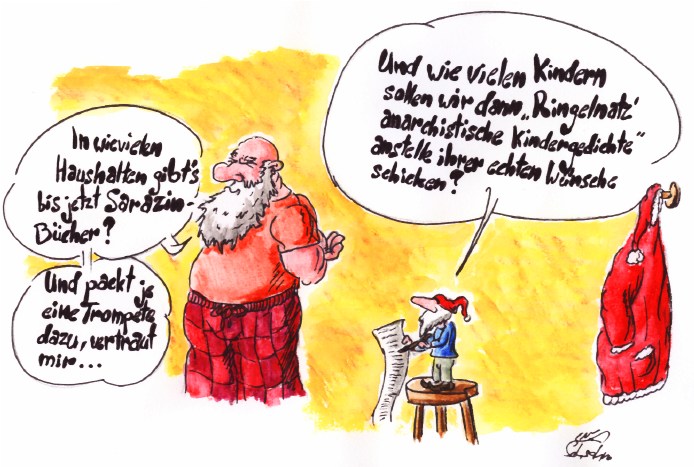 Und wie vielen Kindern
sollen wir dann „Ringelnatz'
anarchistische Kindergedichte“
anstelle ihrer echten Wünsche
schicken?
In wievielen
Haushalten gibt's
bis jetzt Sarazin-
Bücher?
Und packt je
eine Trompete
dazu, vertraut
mir...